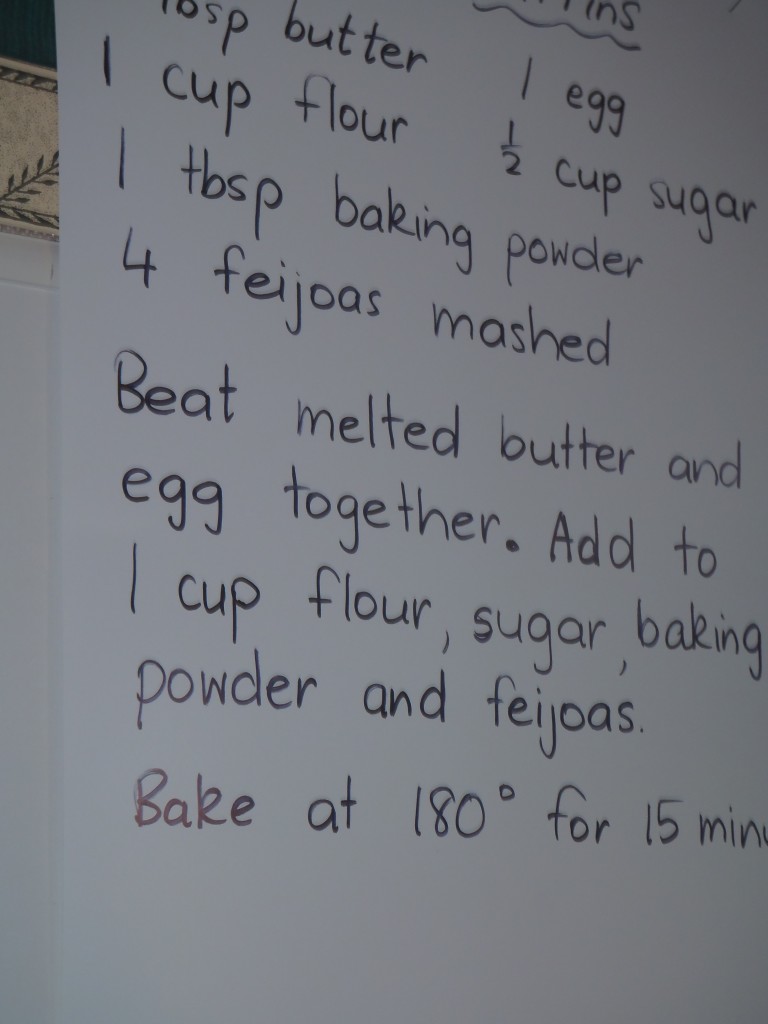 tbsp butter 1 egg
1 cup flour ½ cup sugar
1 tbsp baking powder
4 feijoas mashed
Beat melted butter and
egg together. Add to
1 cup flour, sugar, baking
powder and feijoas.
Bake at 180° for 15 minu